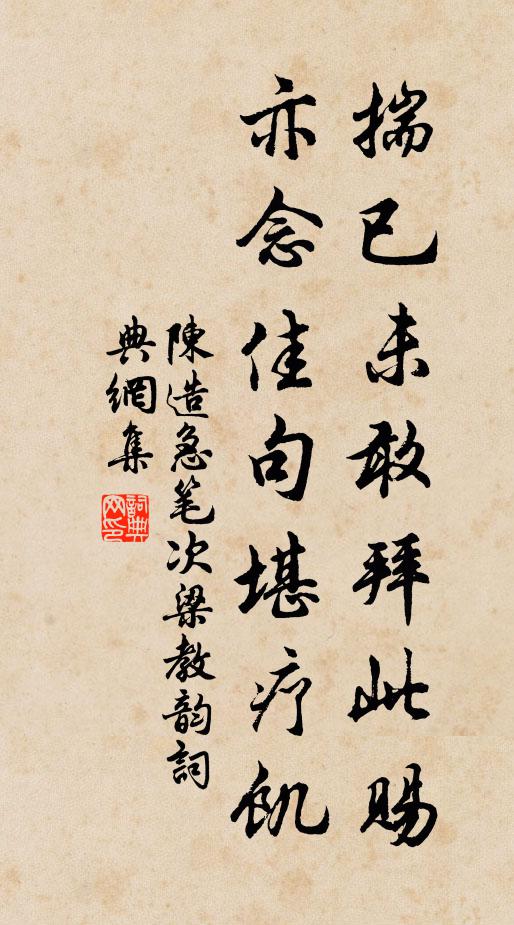 揣己未敢拜此賜
亦念佳句堪疗飢
陳造急笔次梁教韵詞
典網集
詞典网印